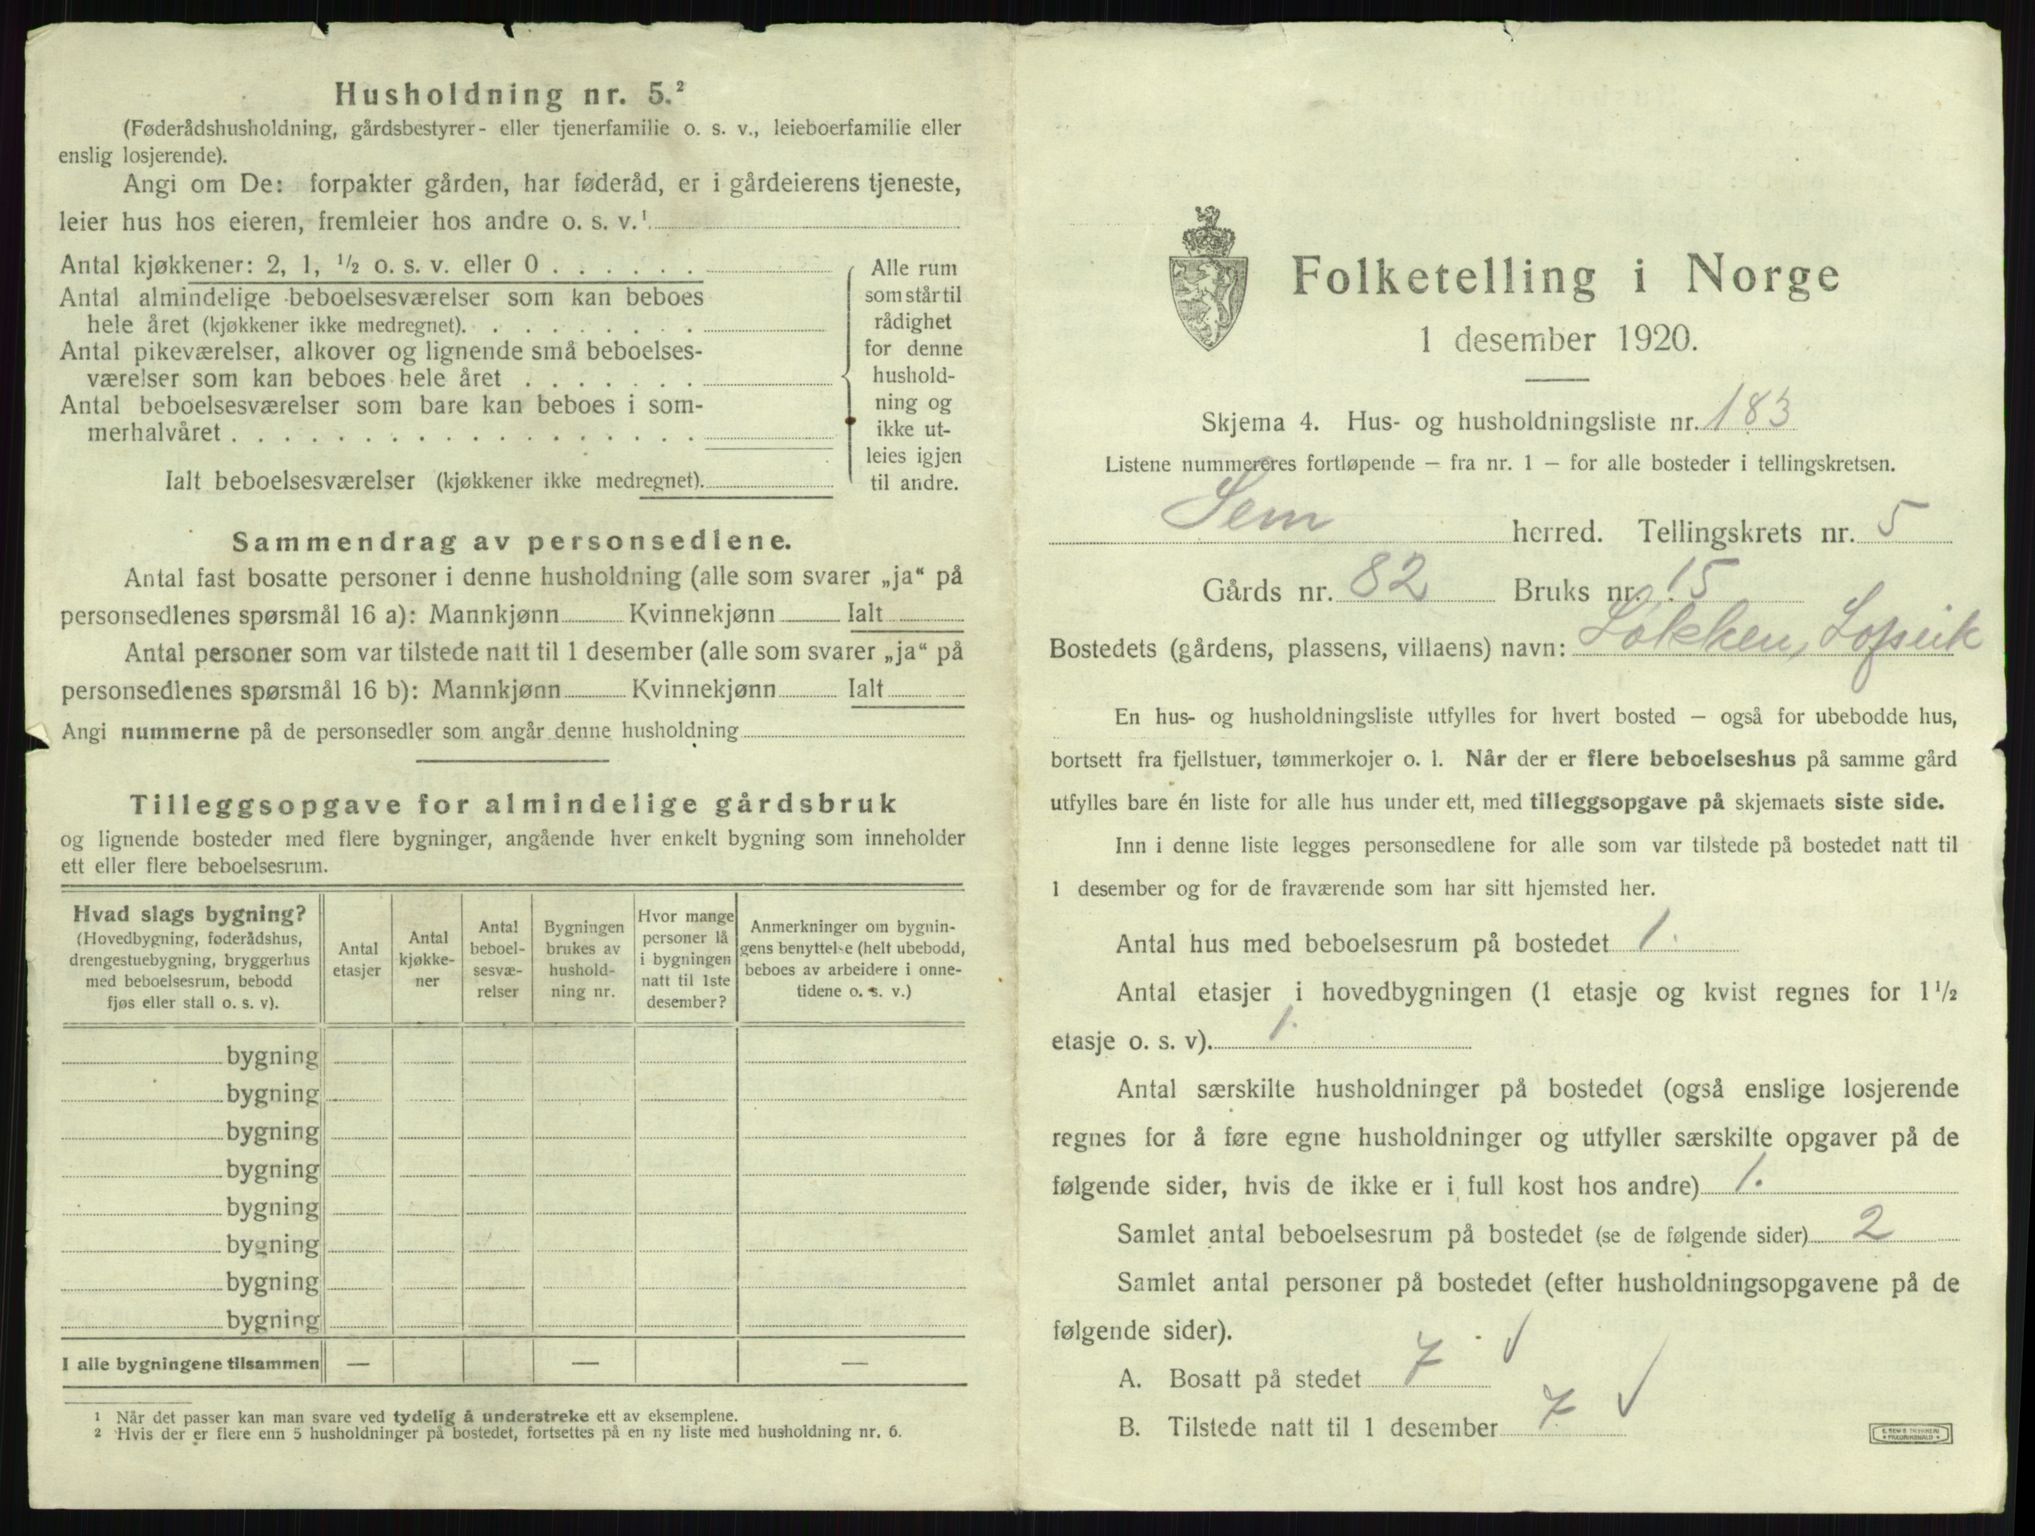 Husholdning nr. 5.²
(Føderådshusholdning, gårdsbestyrer- eller tjenerfamilie o. s. v., leieboerfamilie eller
enslig losjerende).
Angi om De: forpakter gården, har føderåd, er i gårdeierens tjeneste,
leier hus hos eieren, fremleier hos andre o. s. v.¹
Antal kjøkkener: 2, 1, ½ o. s. v. eller 0
Antal almindelige beboelsesværelser som kan beboes
hele året (kjøkkener ikke medregnet).
Antal pikeværelser, alkover og lignende små beboelses-
værelser som kan beboes hele året
Antal beboelsesværelser som bare kan beboes i som-
merhalvåret
Ialt beboelsesværelser (kjøkkener ikke medregnet).
Alle rum
som står til
rådighet
for denne
hushold-
ning og
ikke ut-
leies igjen
til andre.
Sammendrag av personsedlene.
Antal fast bosatte personer i denne husholdning (alle som svarer „ja“ på
personsedlenes spørsmål 16 a): Mannkjønn Kvinnekjønn Ialt
Antal personer som var tilstede natt til 1 desember (alle som svarer „ja“ på
personsedlenes spørsmål 16 b): Mannkjønn Kvinnekjønn Ialt
Angi nummerne på de personsedler som angår denne husholdning
Tilleggsopgave for almindelige gårdsbruk
og lignende bosteder med flere bygninger, angående hver enkelt bygning som inneholder
ett eller flere beboelsesrum.
Hvad slags bygning?
(Hovedbygning, føderådshus,
drengestuebygning, bryggerhus
med beboelsesrum, bebodd
fjøs eller stall o. s. v).
Antal
etasjer
Antal
kjøkke-
ner
Antal
beboel-
sesvæ-
relser
Bygningen
brukes av
hushold-
ning nr.
Hvor mange
personer lå
i bygningen
natt til 1ste
desember?
Anmerkninger om bygnin-
gens benyttelse (helt ubebodd,
beboes av arbeidere i onne-
tidene o. s. v.)
bygning
bygning
bygning
bygning
bygning
bygning
bygning
bygning
I alle bygningene tilsammen — — —
1 Når det passer kan man svare ved tydelig å understreke ett av eksemplene.
2 Hvis der er flere enn 5 husholdninger på bostedet, fortsettes på en ny liste med husholdning nr. 6.
Folketelling i Norge
1 desember 1920.
Skjema 4. Hus- og husholdningsliste nr. 183
Listene nummereres fortløpende – fra nr. 1 – for alle bosteder i tellingskretsen.
Sem herred. Tellingskrets nr. 5
Gårds nr. 82 Bruks nr. 15
Bostedets (gårdens, plassens, villaens) navn: Løkken,
En hus- og husholdningsliste utfylles for hvert bosted – også for ubebodde hus,
bortsett fra fjellstuer, tømmerkojer o. l. Når der er flere beboelseshus på samme gård
utfylles bare én liste for alle hus under ett, med tilleggsopgave på skjemaets siste side.
Inn i denne liste legges personsedlene for alle som var tilstede på bostedet natt til
1 desember og for de fraværende som har sitt hjemsted her.
Antal hus med beboelsesrum på bostedet 1.
Antal etasjer i hovedbygningen (1 etasje og kvist regnes for 1½
etasje o. s. v). 1.
Antal særskilte husholdninger på bostedet (også enslige losjerende
regnes for å føre egne husholdninger og utfyller særskilte opgaver på de
følgende sider, hvis de ikke er i full kost hos andre) 1.
Samlet antal beboelsesrum på bostedet (se de følgende sider) 2
Samlet antal personer på bostedet (efter husholdningsopgavene på de
følgende sider).
A. Bosatt på stedet 7 √
B. Tilstede natt til 1 desember 7 √